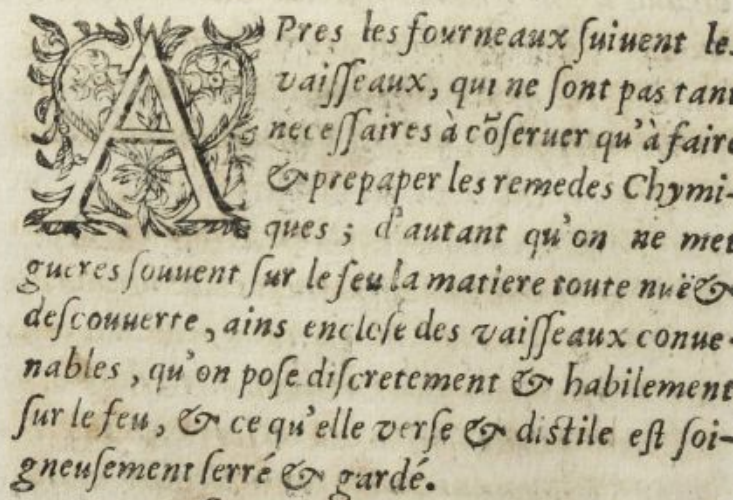 APres les fourneaux ſuiuent les
vaiſſeaux, qui ne ſont pas tant
neceſſaires à cõſeruer qu'à faire
& prepaper les remedes Chymi-
ques ; d'autant qu'on ne met
gueres ſouuent ſur le feu la matiere toute nuë &
deſcouuerte, ains encloſe des vaiſſeaux conue-
nables, qu'on poſe diſcretement & habilement
ſur le feu, & ce qu'elle verſe & diſtile eſt ſoi-
gneuſement ſerré & gardé.